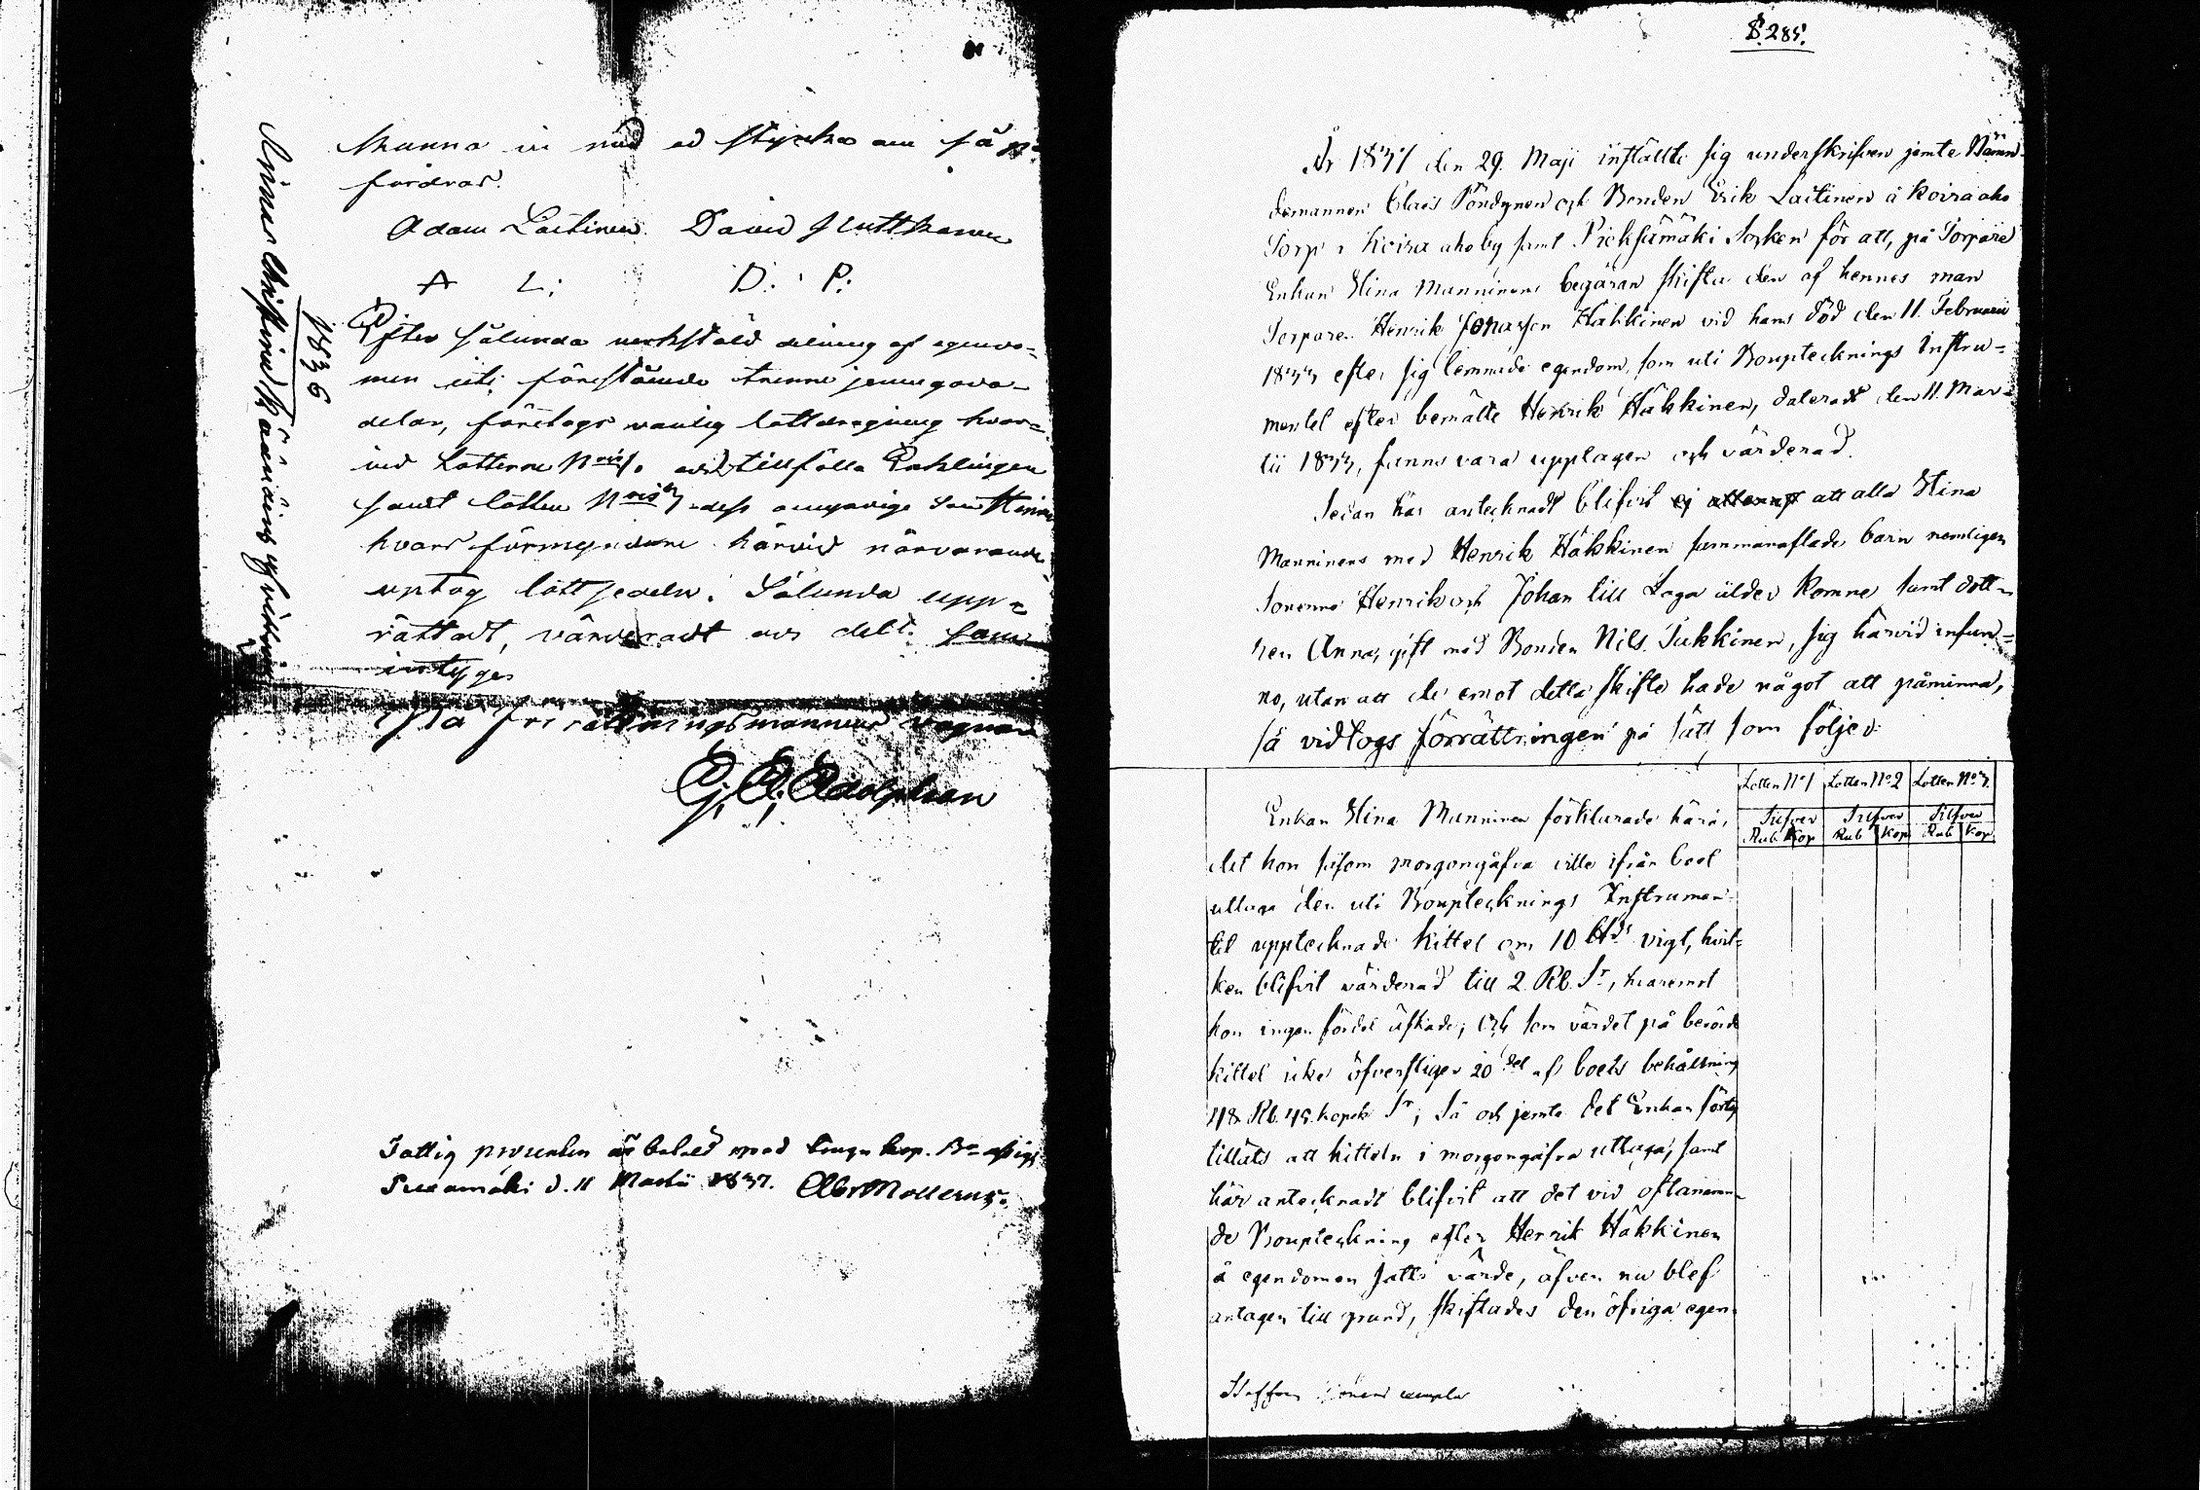 kunna vi med ed styrka om så på
fordras.
Adam Laitinen David Puttkonen
A L: D: P:
Efter sålunda verkstäld delning af egendo=
men uti förestående trenne jemngoda
delar, företogs vanlig lottdragning hvar=
vid Lotterne N:ris 1. och 2 tillföllo Enklingen
samt lotten N:ris 3 dess omyndige Son
hvars förmyndare härvid närvarande
uptog lottsedeln. Sålunda upp=
rättadt, värderadt och delt. Som
intyga
På förrättningsmännens vagnar
G. A. Adolphson
Fattig procenten är betald med kop. B:co assign.
Pieksämäki d. 11 Martii 1837. Mollerus.
1836
S. 285.
År 1837 den 29. Maji inställte sig underskrifven jemte Nämn=
demannen Claës Pöndynen och Bonden Erik Laitinen å Koiraaho
Torp i Koiraaho by samt Pieksämäki Socken för att, på Torpare
Enkan Stina Manninens begäran skifta den af hennes man
Torparen Henrik Jonasson Häkkinen vid hans död den 11. Februarii
1833 efter sig lemnade egendom, som uti Bouptecknings Instru=
mentet efter bemälte Henrik Häkkinen, dateradt den 11. Mar=
tii 1833, funns vara upptagen och värderad.
Sedan här antecknadt blifvit att alla Stina
Manninens med Henrik Häkkinen sammanaflade barn nemligen
Sönerne Henrik och Johan till Laga ålder komne samt dott=
ren Anna, gift med Bonden Nils Tukkinen, sig härvid infun=
no, utan att de emot detta skifte hade något att påminna,
så vidtogs förrättningen på sätt som följer:
Lotten N:o 1 Lotten N:o 2 Lotten N:o 3.
Silfver Silfver Silfver
Rub Kop Rub Kop Rub Kop
Enkan Stina Manninen förklarade härå,
det hon såsom morgongåfva ville ifrån boet
uttaga den uti Bouptecknings Instrumen=
tet upptecknade kittel om 10 vigt, hvil=
ken blifvit värderad till 2 Rb. S:r, hvaremot
hon ingen fördel äskade; Och som värdet på berörde
kittel icke öfverstiger 20 del af boets behållning
48 Rb. 45. kopek S:r; Så och jemte det Enkan
tilläts att kitteln i morgongåfva uttaga, samt
här antecknadt blifvit att det vid oftanämn=
de Boupteckning efter Henrik Häkkinen
å egendomen satta värde, äfven nu blef
antagen till grund, skiftades den öfriga egen=